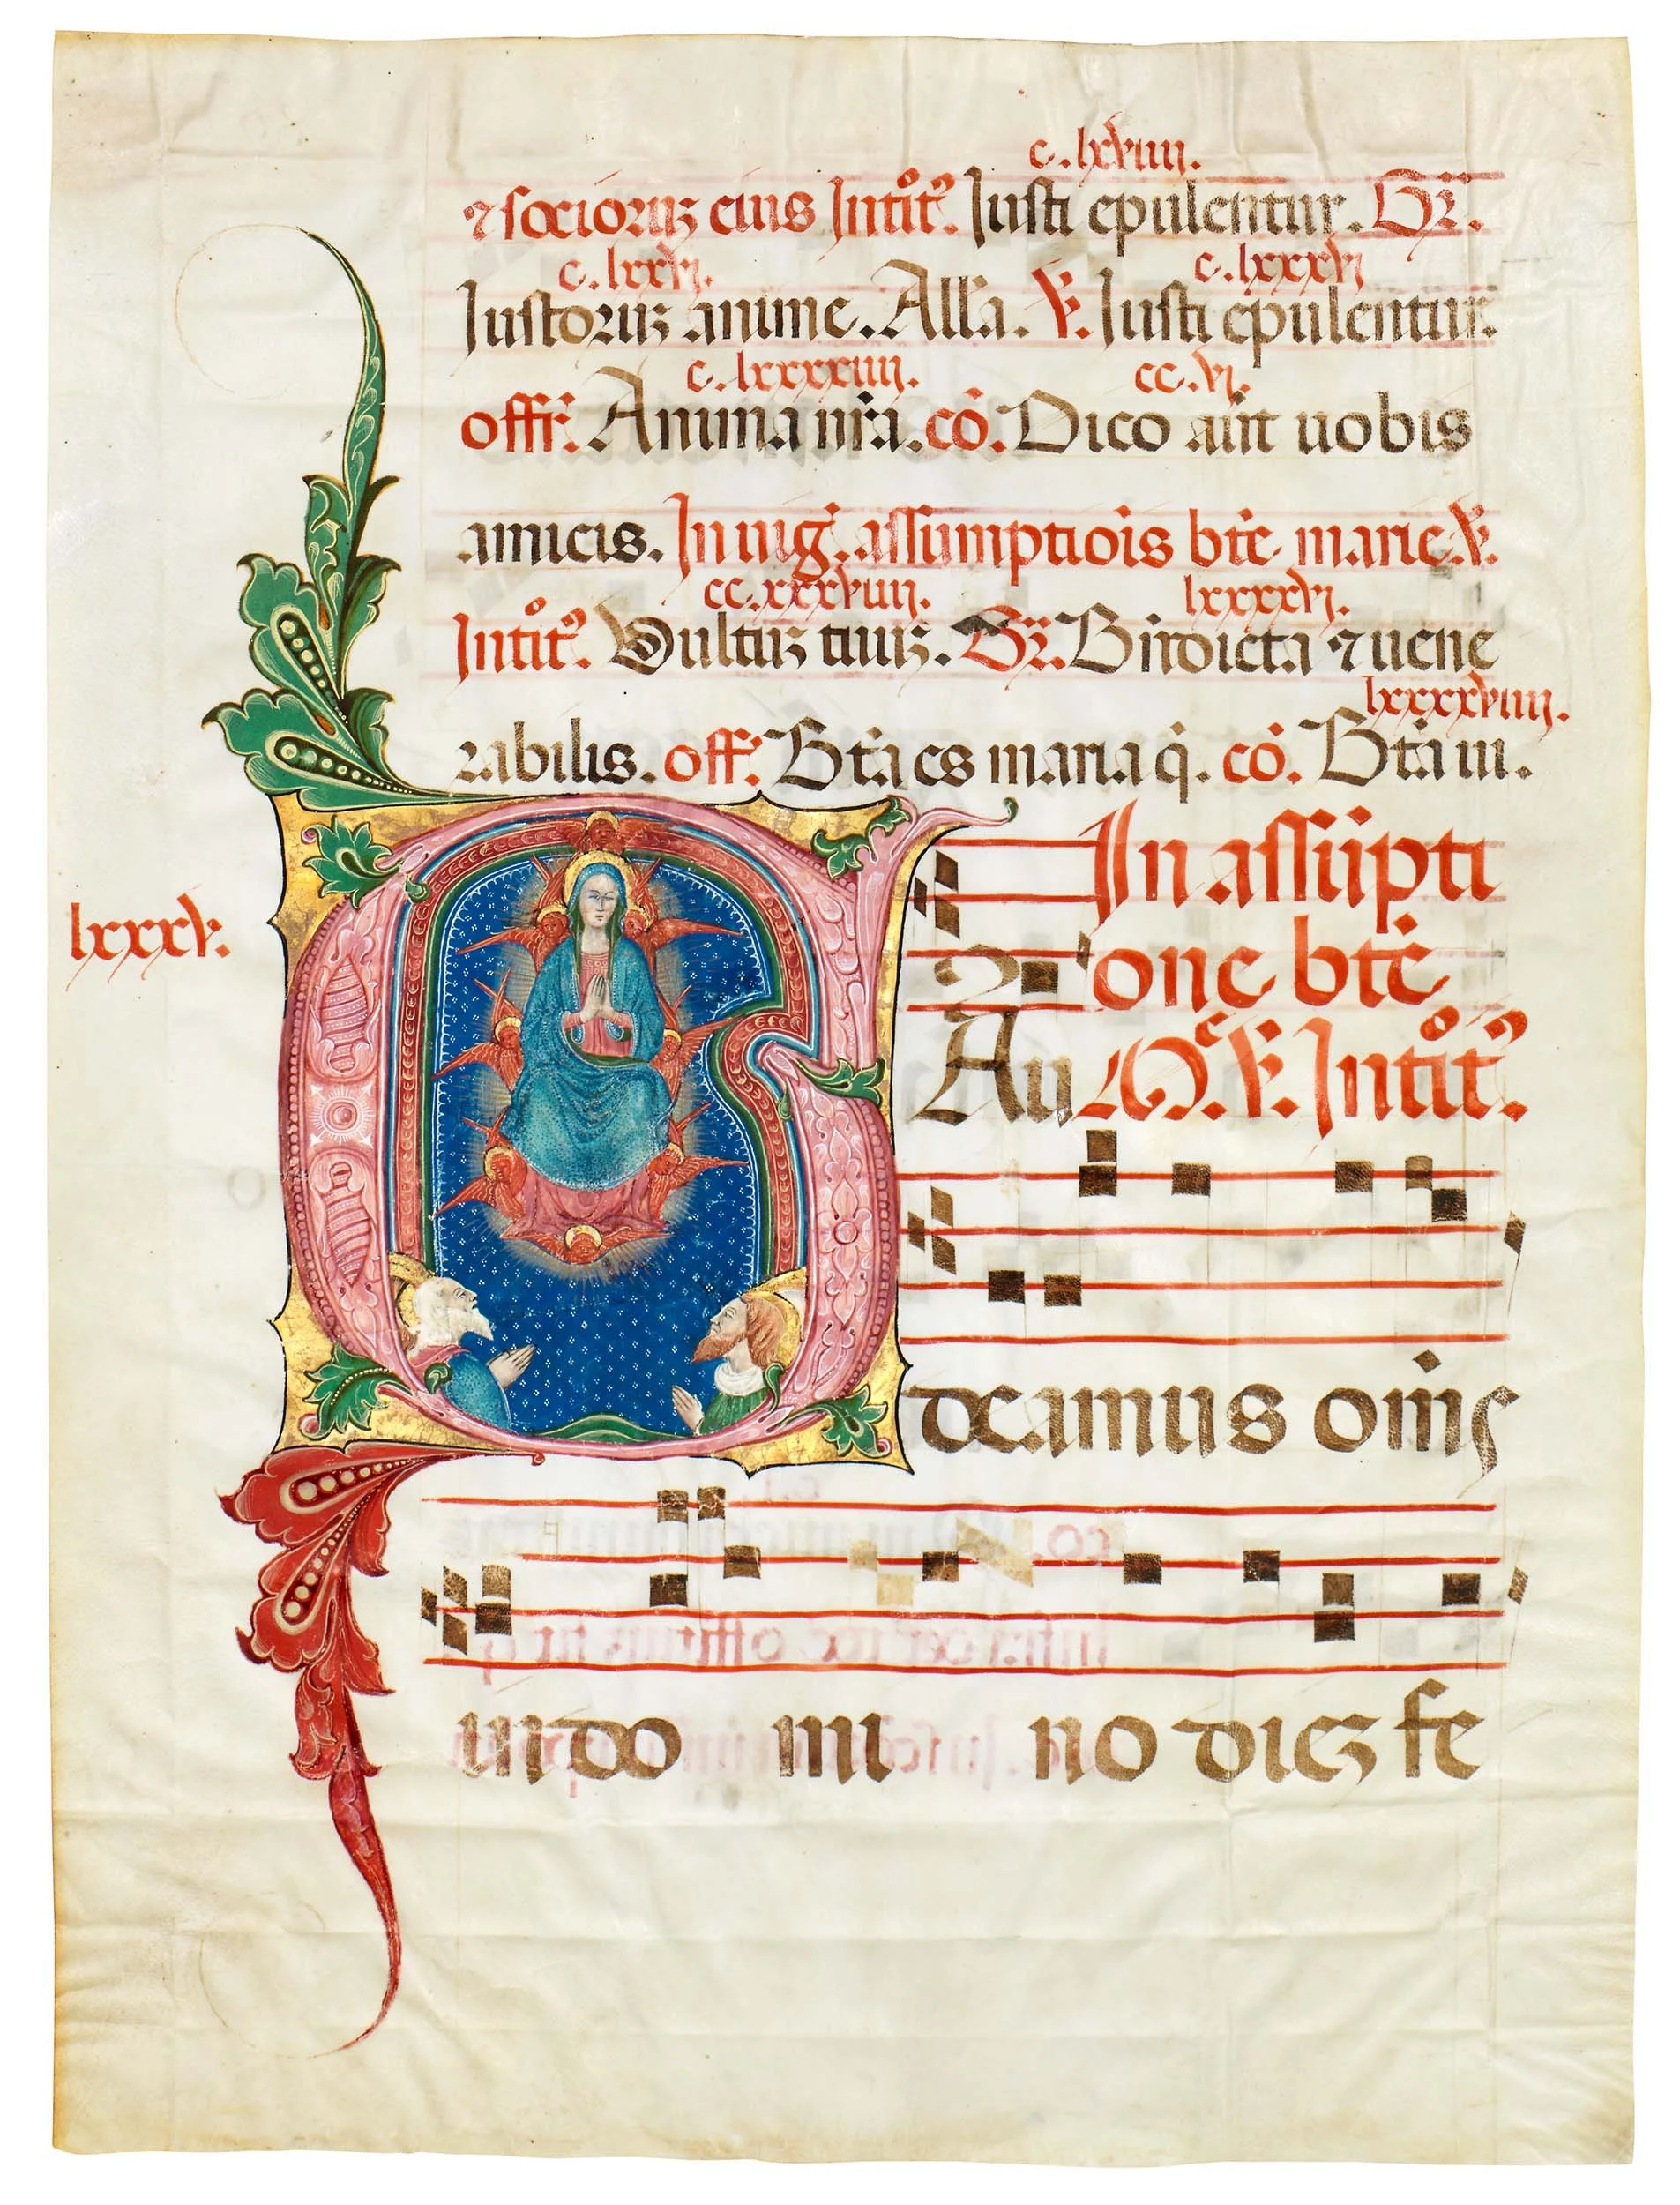 c. lxviiii.
⁊ socioruʒ eius Intitꝰ. Iusti epulentur. Gr̄.
c. lxxvi. c. lxxxvi
Iustoruʒ anime. All'a. ℣. Iusti epulentur.
c. lxxxxiiii. cc. vi.
offr̄. Anima nr̄a. cō. Dico aūt uobis
amicis. In uig̃. assumptiōis btē marie. ℣.
cc. xxxviiii. lxxxxvi.
Intitꝰ. Uultuʒ tuuʒ. Gr̄. Bn̄dicta ⁊ uene
lxxxxviiii.
rabilis. off. Btā es maria q̄. cō. Btā ui.
In assūpti
lxxxv.
one btē
Au M. ℣. Intitꝰ.
G
deamus om̄s
in do mi no dieʒ fe